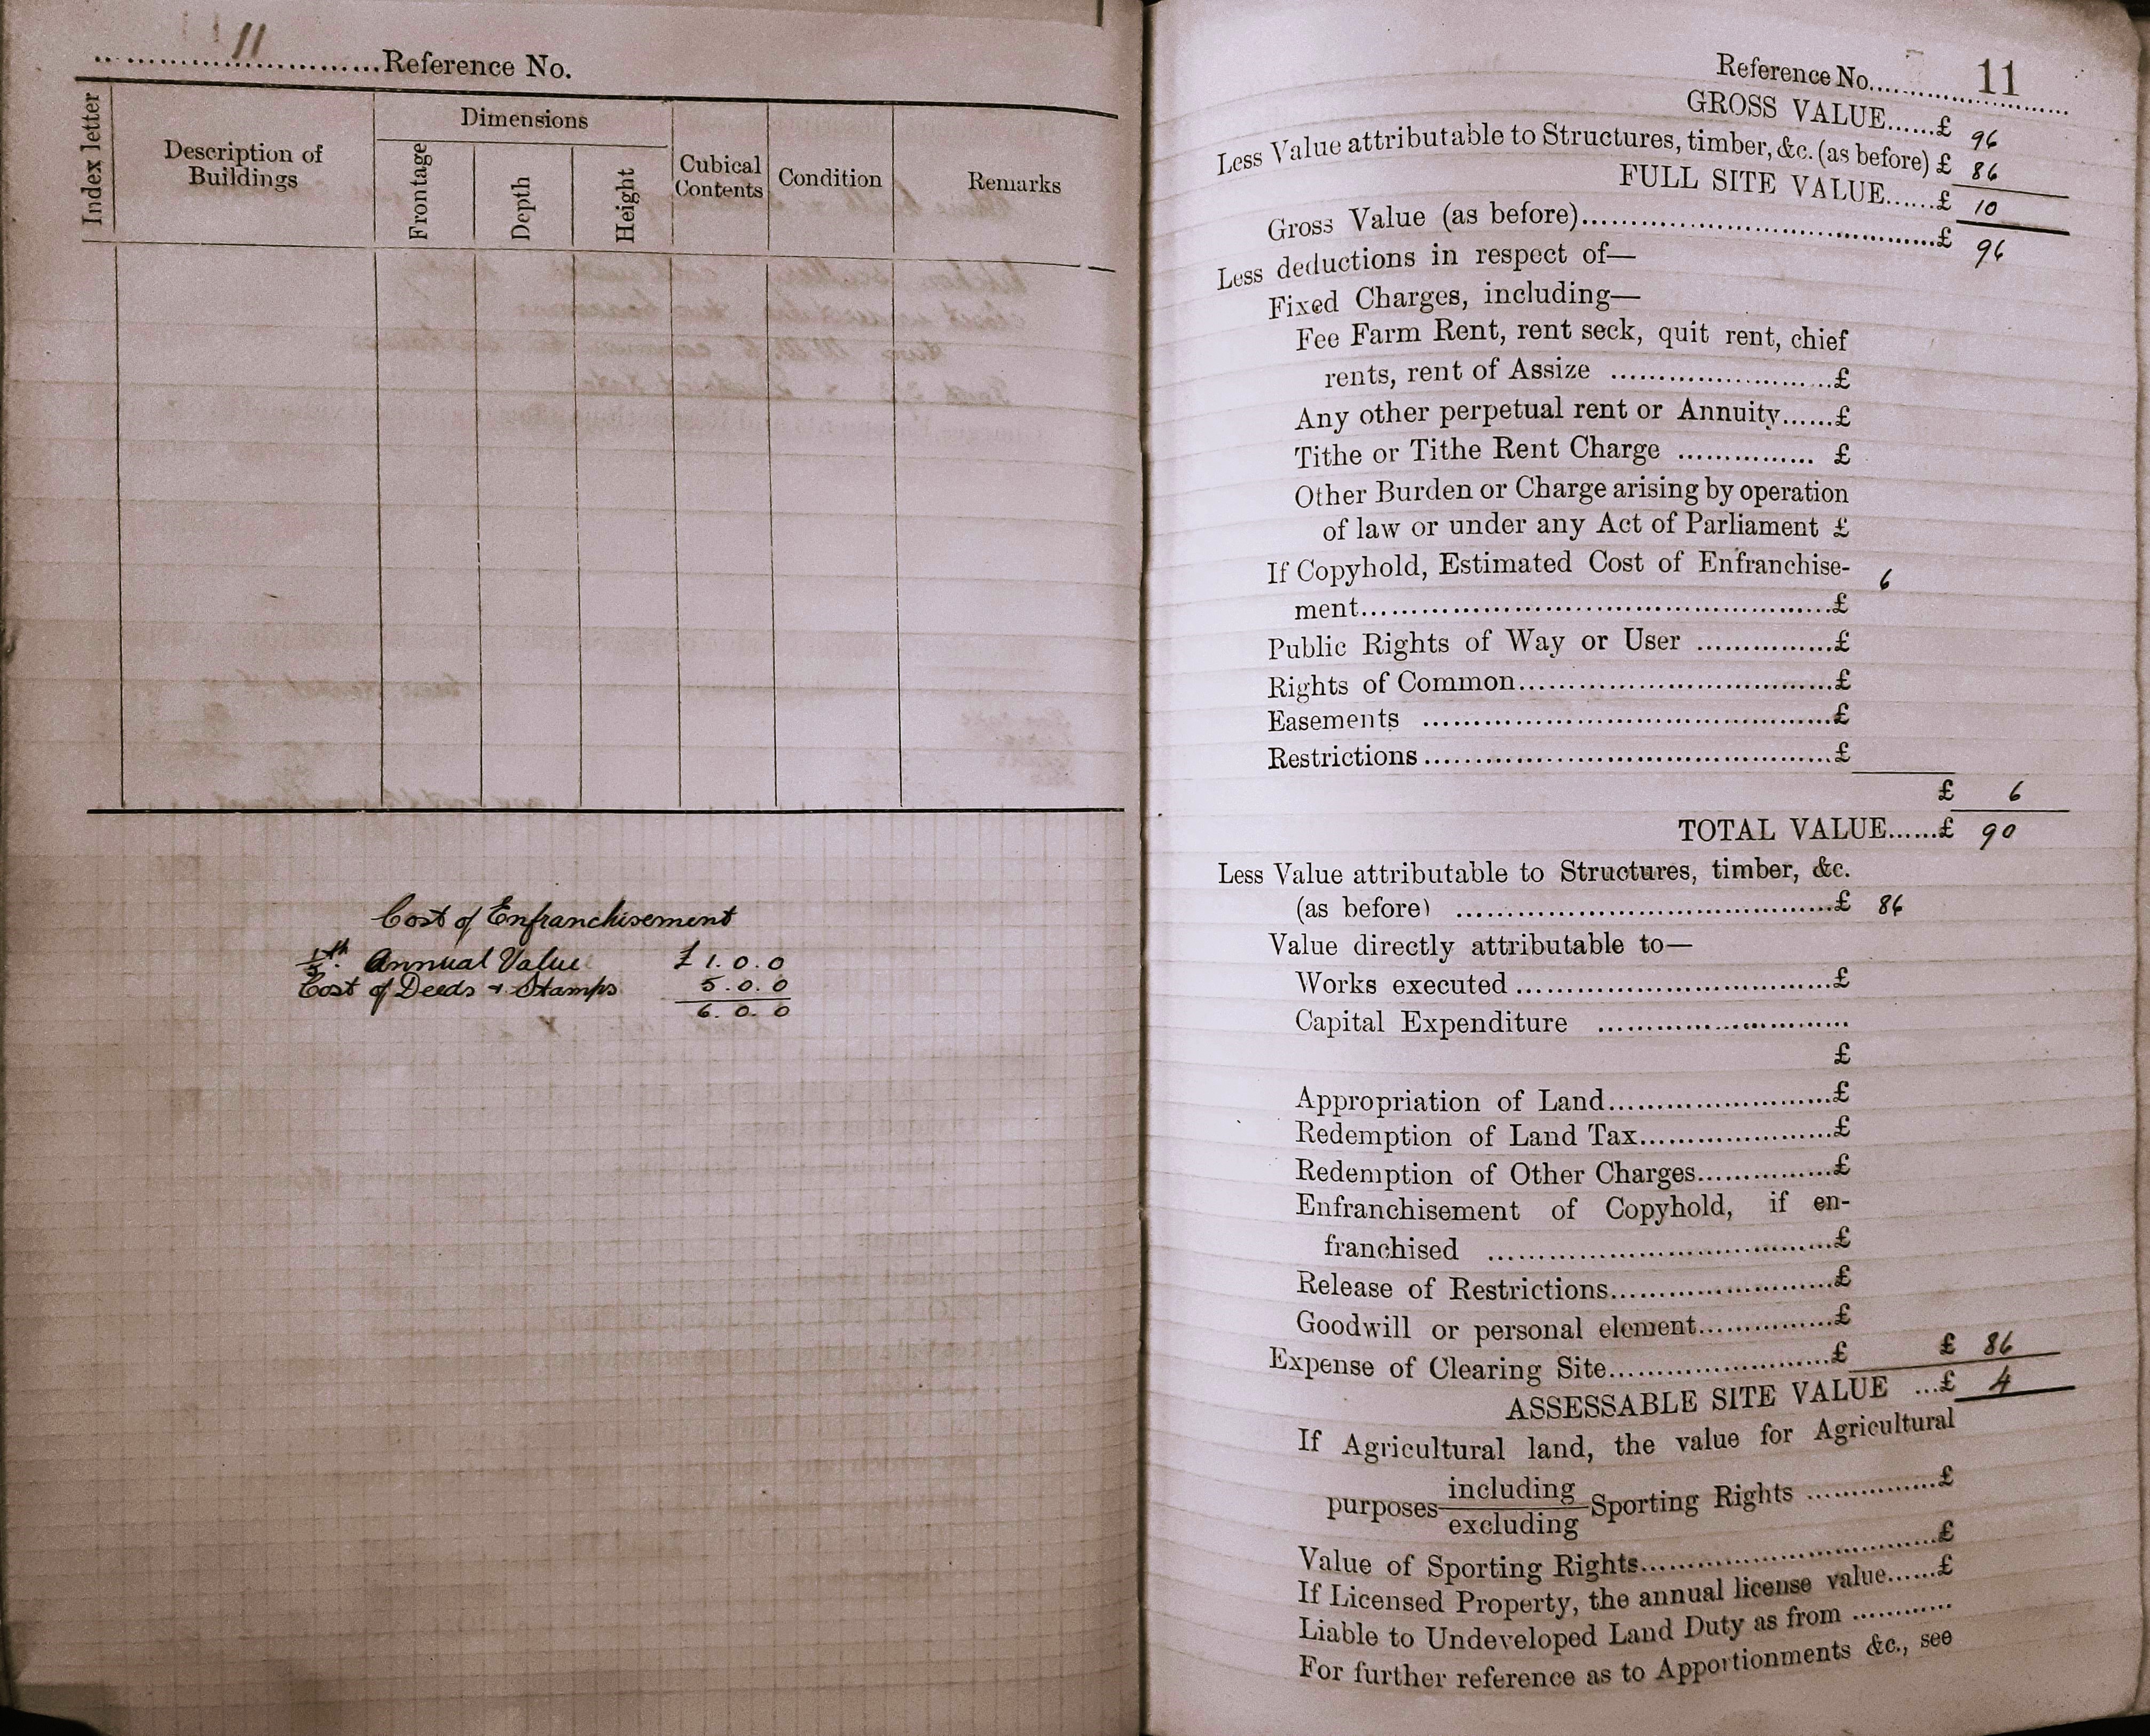 11
.........................Reference No.
Index letter
Description of
Buildings
Dimensions
Frontage
Depth
Height
Cubical
Contents
Condition
Remarks
Cost of Enfranchisement
Annual Value £ 1. 0. 0
Cost of Deeds + Stamps 5. 0. 0
6. 0. 0
Reference No......11......
GROSS VALUE......£ 96
Less Value attributable to Structures, timber, &c. (as before) £ 86
FULL SITE VALUE......£ 10
Gross Value (as before)..............................£ 96
Less deductions in respect of—
Fixed Charges, including—
Fee Farm Rent, rent seck, quit rent, chief
rents, rent of Assize ........................£
Any other perpetual rent or Annuity......£
Tithe or Tithe Rent Charge ............... £
Other Burden or Charge arising by operation
of law or under any Act of Parliament £
If Copyhold, Estimated Cost of Enfranchise-
ment..................................................£ 6
Public Rights of Way or User ...............£
Rights of Common.................................£
Easements ..........................................£
Restrictions..........................................£
£ 6
TOTAL VALUE......£ 90
Less Value attributable to Structures, timber, &c.
(as before) .......................................£ 86
Value directly attributable to—
Works executed.................................£
Capital Expenditure ..........................
£
Appropriation of Land........................£
Redemption of Land Tax.....................£
Redemption of Other Charges...............£
Enfranchisement of Copyhold, if en-
franchised .....................................£
Release of Restrictions........................£
Goodwill or personal element...............£
Expense of Clearing Site........................£ £ 86
ASSESSABLE SITE VALUE ...£ 4
If Agricultural land, the value for Agricultural
purposes including
excluding Sporting Rights ...............£
Value of Sporting Rights..............................£
If Licensed Property, the annual license value......£
Liable to Undeveloped Land Duty as from ............
For further reference as to Apportionments &c., see